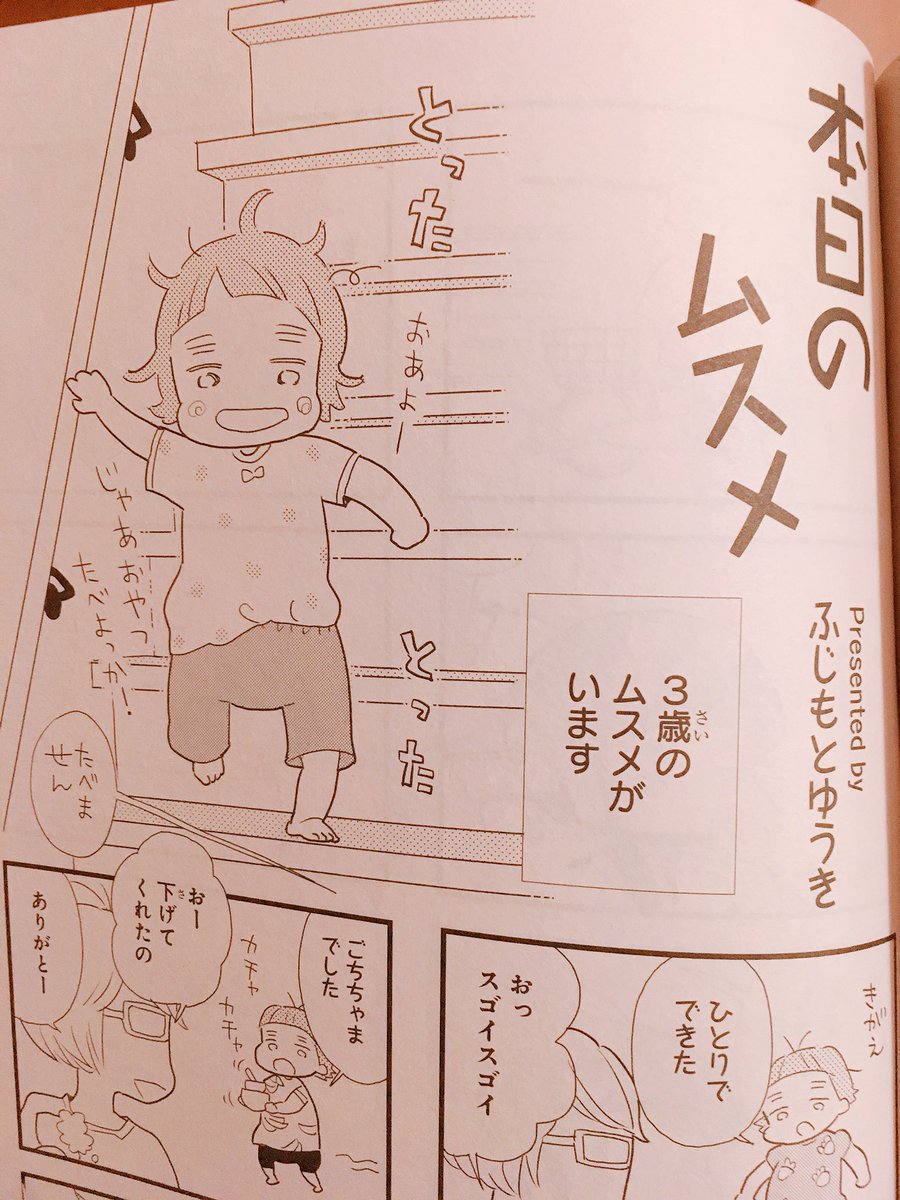 本日の
ムスメ
Presented by
ふじもとゆうき
3歳の
さい
ムスメが
います
とった
とった
おぁよー
じゃあ おやつ
たべよっか!
たべま
せん
きがえ
ひとりで
できた
おっ
スゴイスゴイ
ごちちゃま
でした
カチャ
カチャ
おー
下げて
さ
くれたの
ありがとー